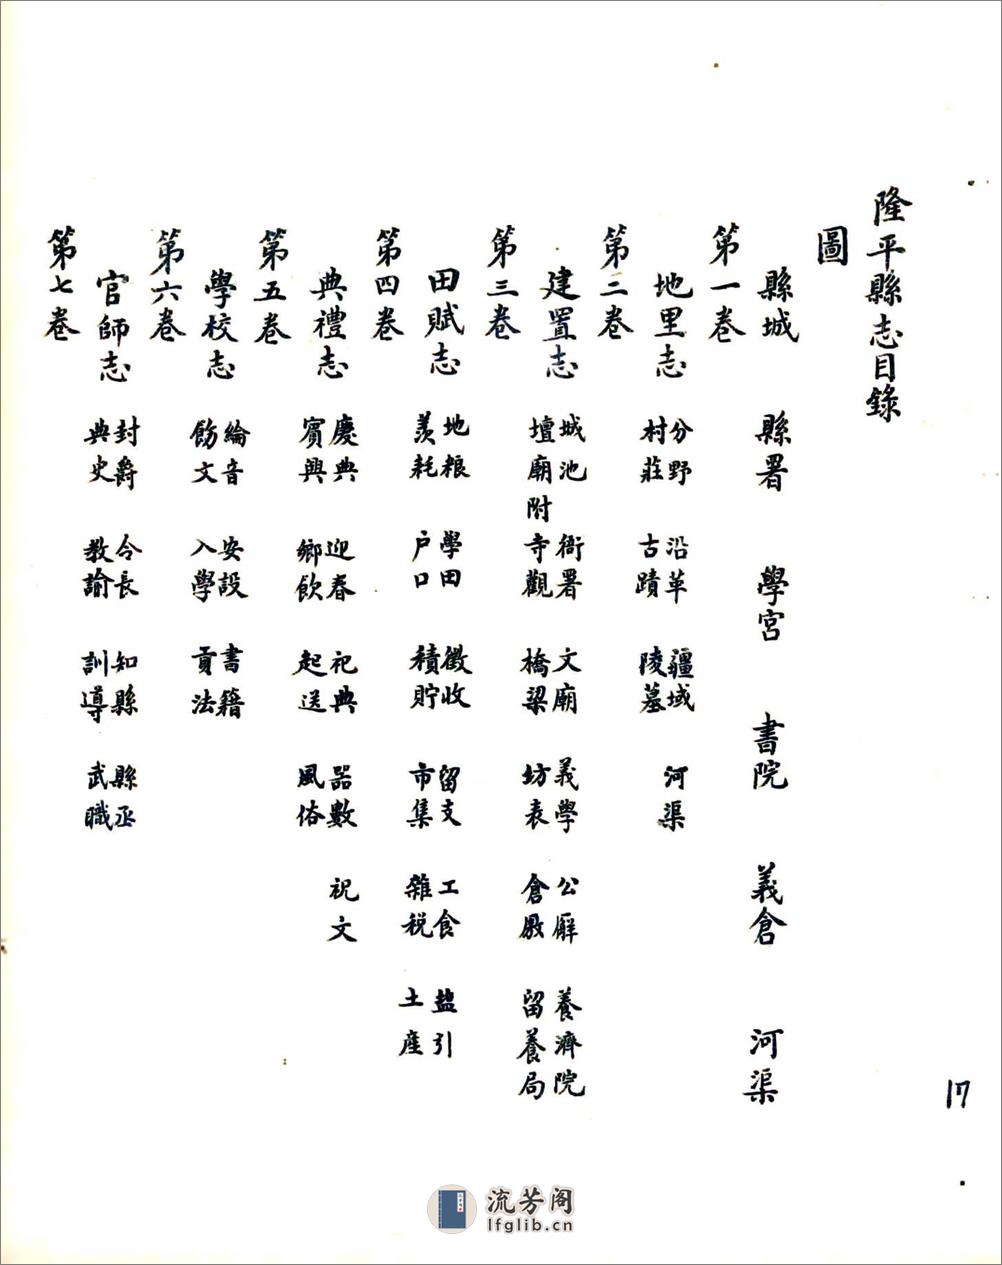 隆平縣志目錄
圖
縣城 縣署 學宮 書院 義倉 河渠
第一卷
地里志 分野 沿革 疆域 河渠
村莊 古蹟 陵墓
第二卷
建置志 城池 衙署 文廟 義學 公廨 養濟院
壇廟附寺觀 橋梁 坊表 倉厫 留養局
第三卷
田賦志 地粮 學田 徵收 留支 工食 盐引
羨耗 户口 積貯 市集 雜税 土産
第四卷
典禮志 慶典 迎春 祀典 器數 祝文
賓興 鄉飲 起送 風俗
第五卷
學校志 綸音 安設 書籍
飭文 入學 貢法
第六卷
官師志 封爵 令長 知縣 縣丞
典史 教諭 訓導 武職
第七卷
17
流芳阁
lfglib.cn